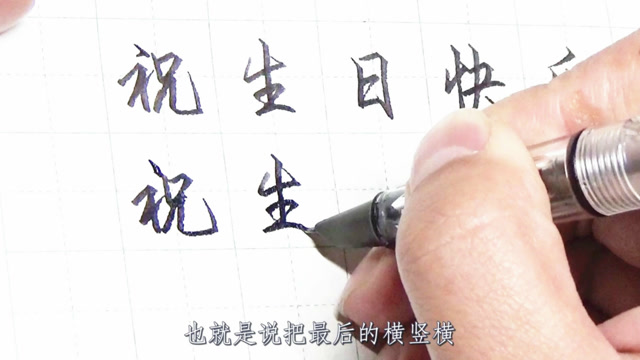 祝生日快
祝生
也就是说把最后的横竖横